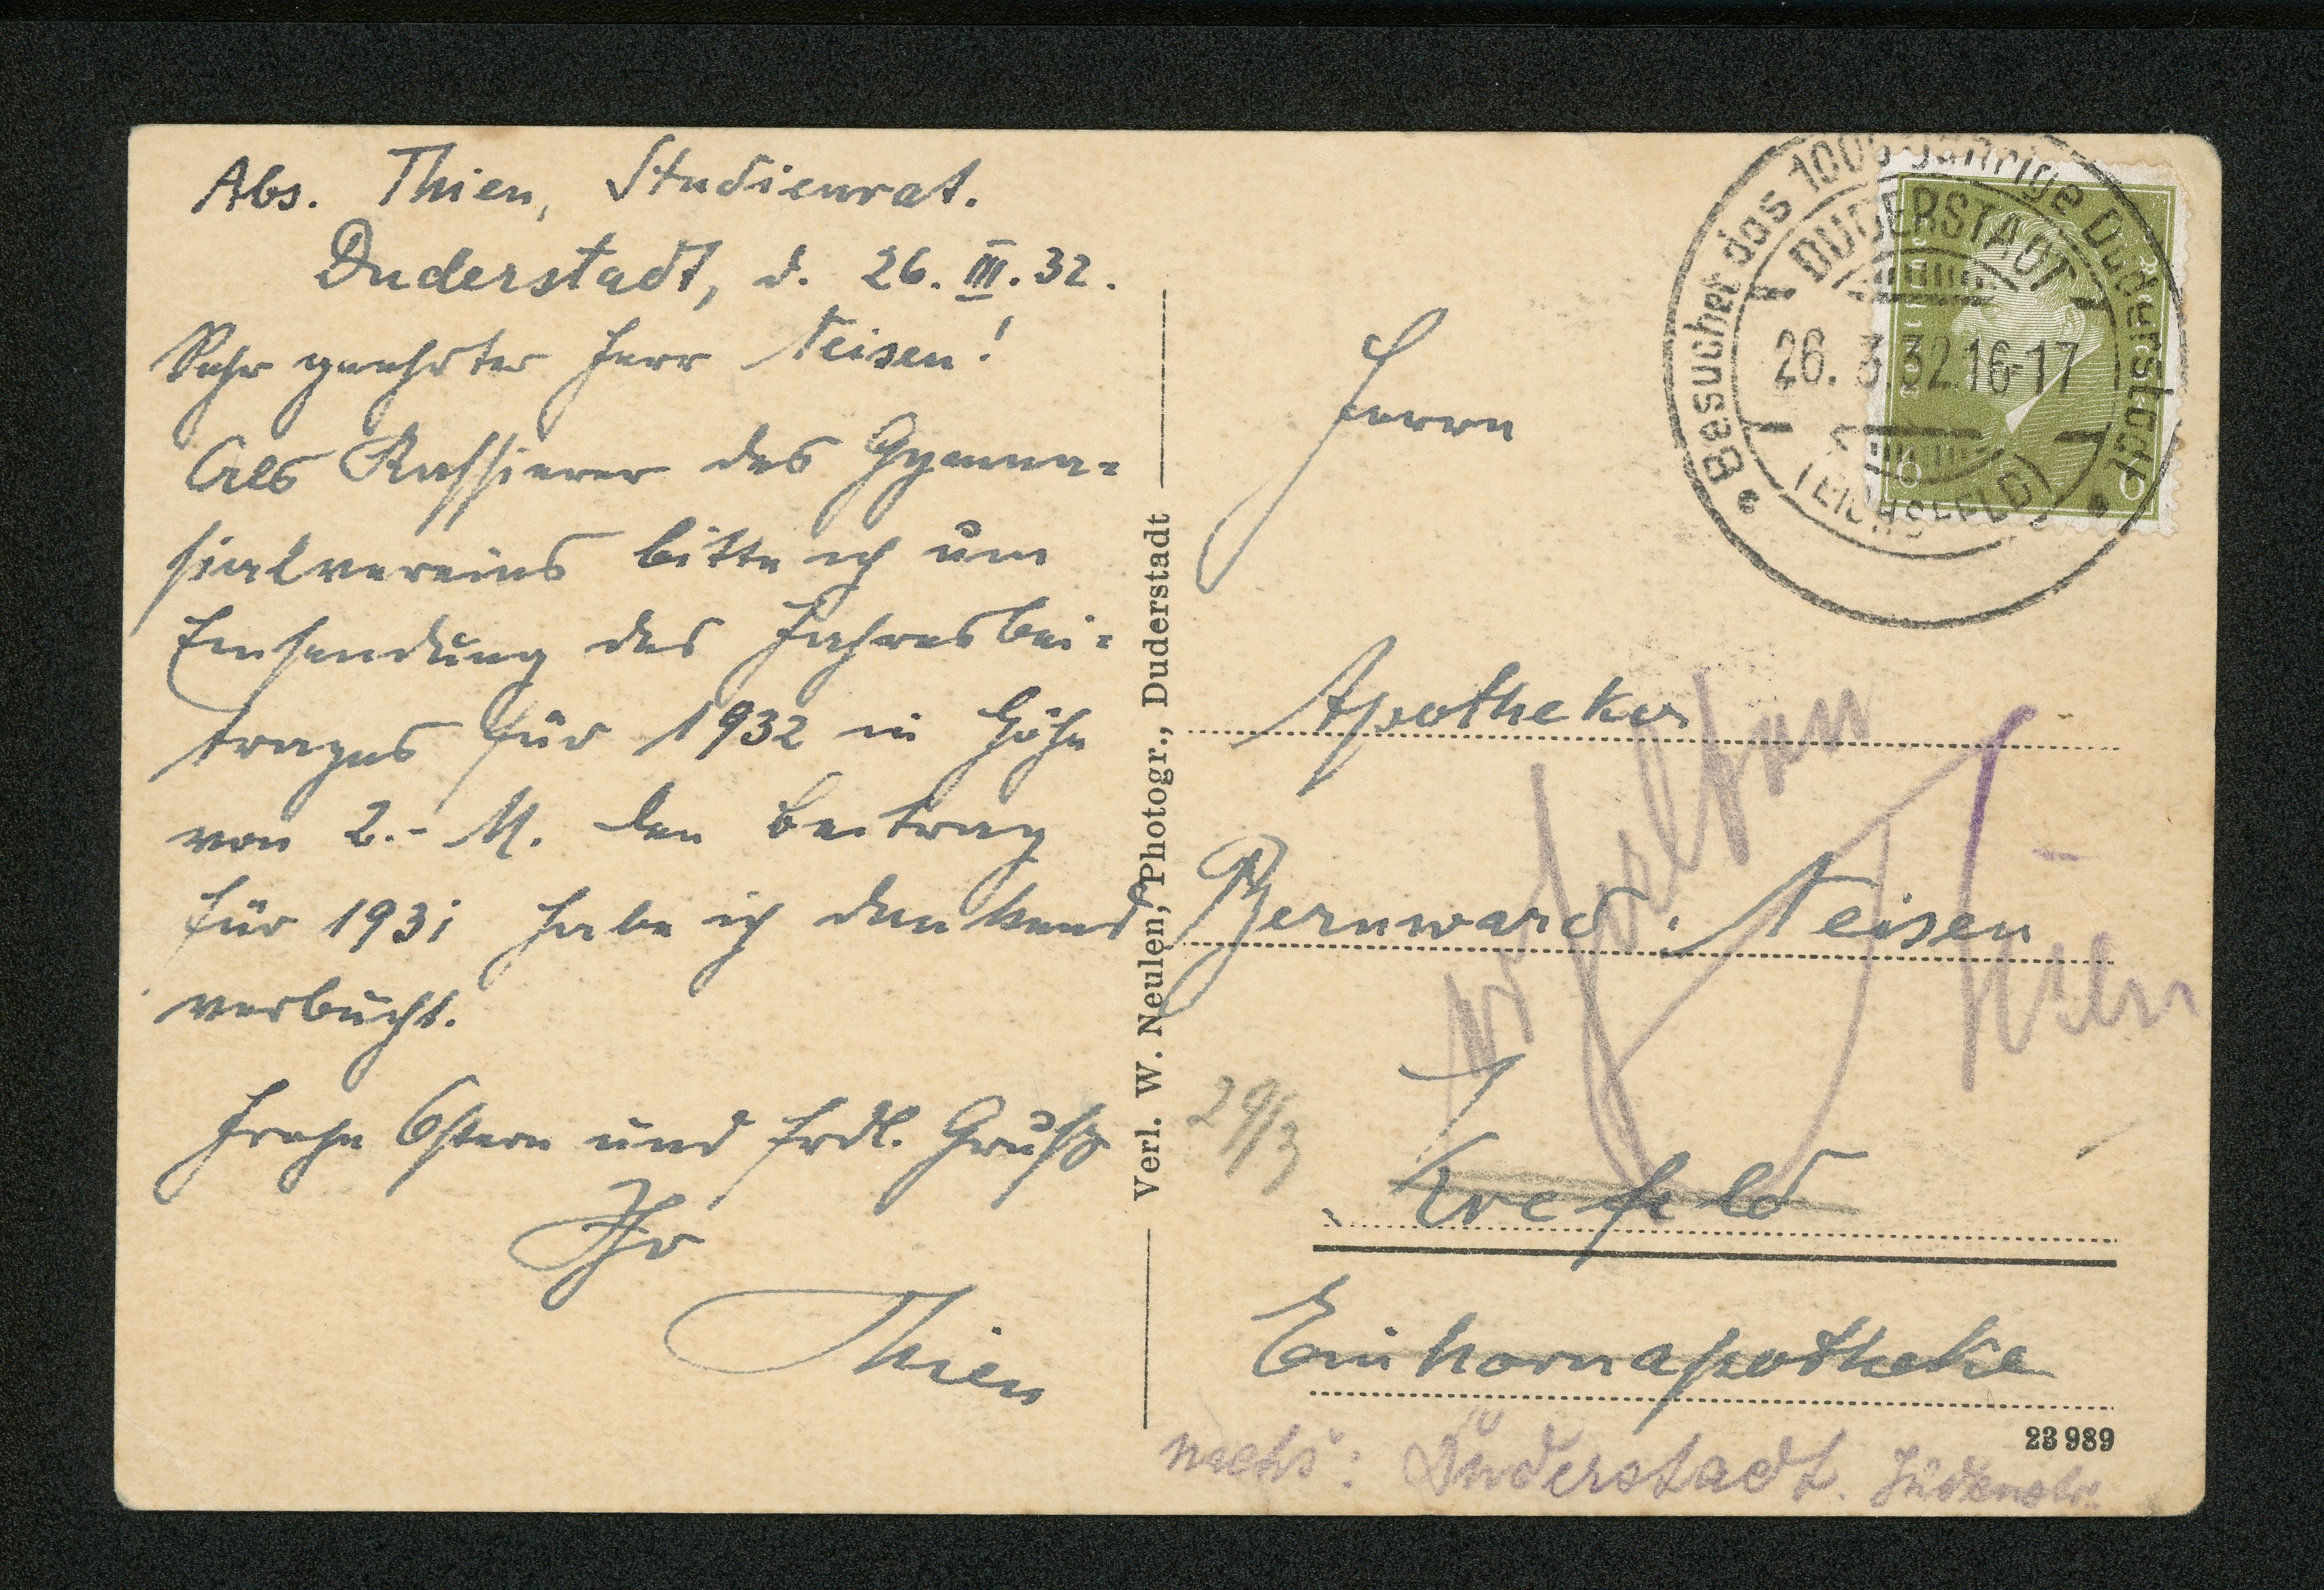 Abs. Thien, Studienrat.
Duderstadt, d. 26. III. 32.
Sehr geehrter Herr Neisen!
Als Kassierer des Gymna-
sialvereins bitte ich um
Einsendung des Jahresbei-
trages für 1932 in Höhe
von 2.- M. Den Beitrag
für 1931 habe ich dankend
verbucht.
Frohe Ostern und frdl. Gruß
Ihr
Thien
Verl. W. Neulen, Photogr., Duderstadt
Besuchet das 1000 jährige Duderstadt
DUDERSTADT
26. 3. 32. 16-17
(EICHSFELD)
Herrn
Apotheker
Bernward Neisen
Krefeld
Einhornapotheke
23 989
29/3
nachs: Duderstadt. Jüdenstr.